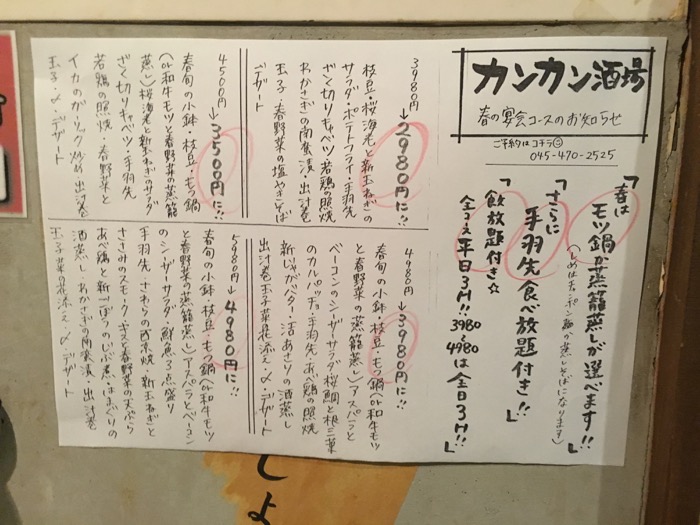 カンカン酒場
春の宴会コースのお知らせ
ご予約はコチラ
045-470-2525
「春は
モツ鍋か蒸籠蒸しが選べます!!
(しめはチャンポン麺か蒸しそばになります)
「さらに
手羽先食べ放題付き!!」
「飲放題付き☆
全コース平日3H!! 3980
4980は全日3H!!」
3980円→2980円に!!
枝豆・桜海老と新玉ねぎの
サラダ・ポテトフライ・手羽先
ざく切りキャベツ・若鶏の照焼
わかさぎの南蛮漬・出汁巻
玉子・春野菜の塩やきそば
デザート
4500円→3500円に!!
春旬の小鉢・枝豆・もつ鍋
(or和牛モツと春野菜の蒸籠
蒸し)桜海老と新玉ねぎのサラダ
ざく切りキャベツ・手羽先
若鶏の照焼・春野菜と
イカのガーリック炒め・出汁巻
玉子・〆・デザート
4980円→3980円に!!
春旬の小鉢・枝豆・もつ鍋(or和牛モツ
と春野菜の蒸籠蒸し)アスパラと
ベーコンのシーザーサラダ・桜鯛と根三葉
のカルパッチョ・手羽先・あべ鶏の照焼
新じゃがバター・活あさりの酒蒸し
出汁巻玉子菜花添え・〆・デザート
5980円→4980円に!!
春旬の小鉢・枝豆・もつ鍋(or和牛モツ
と春野菜の蒸籠蒸し)アスパラとベーコン
のシーザーサラダ・鮮魚3点盛り
手羽先・さわらの西京焼・新玉ねぎと
ささみのスモーク・キスと春野菜の天ぷら
あべ鶏と新ごぼうのいぶ煮・はまぐりの
酒蒸し・わかさぎの南蛮漬・出汁巻
玉子菜花添え・〆・デザート
しょ